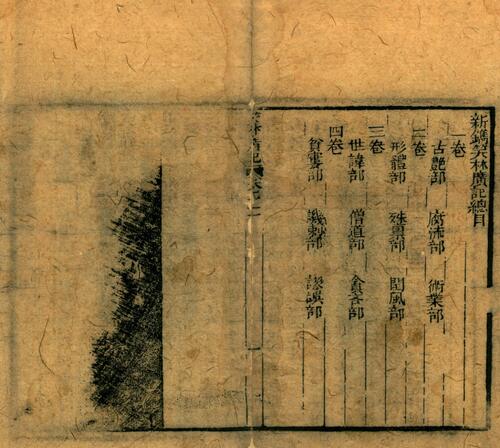 新鐫笑林廣記總目
一卷
古艷部 腐流部 術業部
二卷
形體部 殊稟部 閨風部
三卷
世諱部 僧道部 貪吝部
四卷
貧窶部 譏刺部 謬誤部
笑林廣記